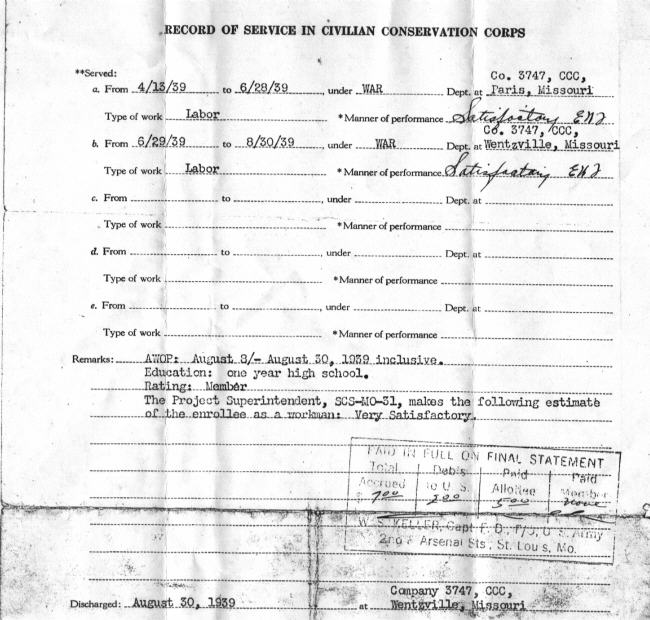 RECORD OF SERVICE IN CIVILIAN CONSERVATION CORPS
**Served:
Co. 3747, CCC,
a. From 4/13/39 to 6/28/39, under WAR Dept. at Paris, Missouri
Type of work Labor *Manner of performance Satisfactory
Co. 3747, CCC,
b. From 6/29/39 to 8/30/39, under WAR Dept. at Wentzville, Missouri
Type of work Labor *Manner of performance Satisfactory
c. From to , under Dept. at
Type of work *Manner of performance
d. From to , under Dept. at
Type of work *Manner of performance
e. From to , under Dept. at
Type of work *Manner of performance
Remarks: AWOP: August 8/- August 30, 1939 inclusive.
Education: one year high school.
Rating: Member
The Project Superintendent, SCS-MO-31, makes the following estimate
of the enrollee as a workman: Very Satisfactory.
PAID IN FULL ON FINAL STATEMENT
Total Debts Paid Paid
Accrued to U.S. Allottee Member
$ 7.00 2.00 5.00 none
W. S. KELLER, Capt. F. D., U. S. Army
2nd & Arsenal Sts., St. Louis, Mo.
Company 3747, CCC,
Discharged: August 30, 1939 at Wentzville, Missouri